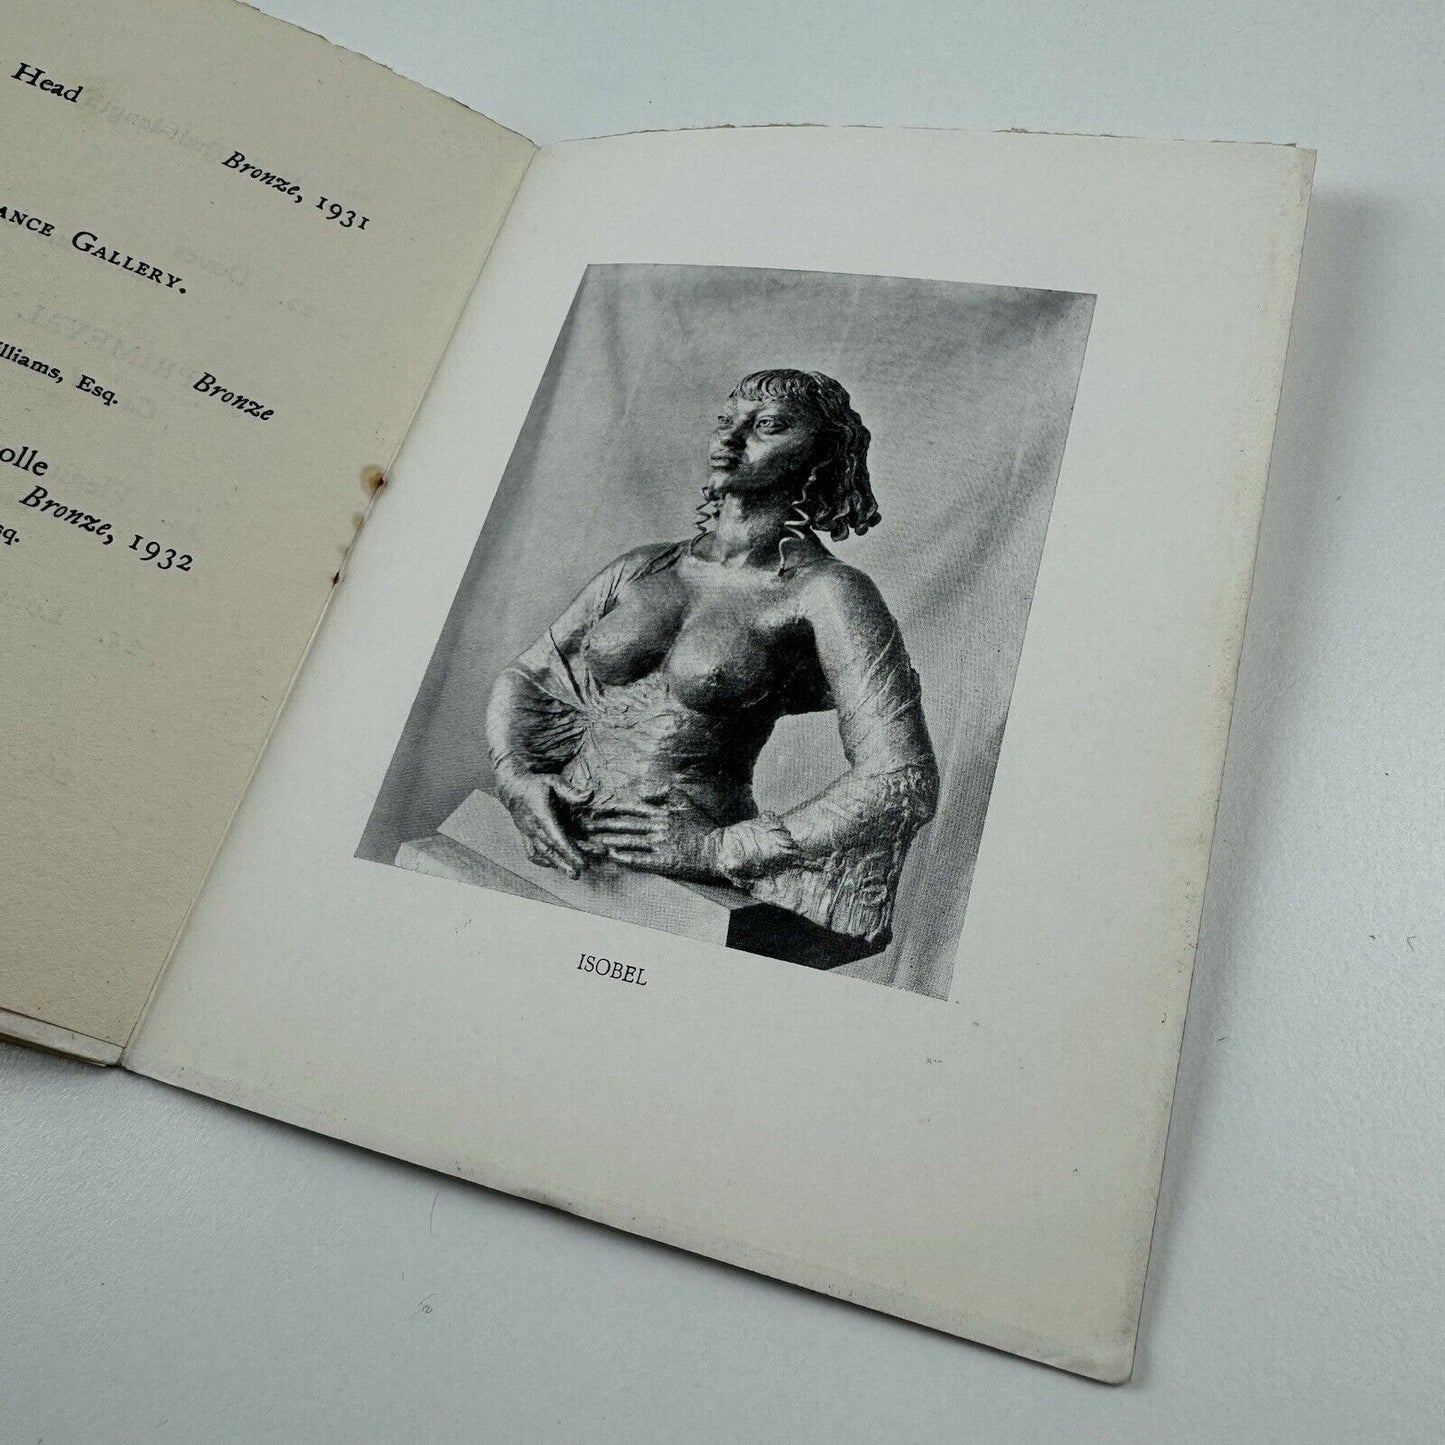 Head
Bronze, 1931
ANCE GALLERY.
Bronze
lliams, Esq.
olle
Bronze, 1932
sq.
ISOBEL